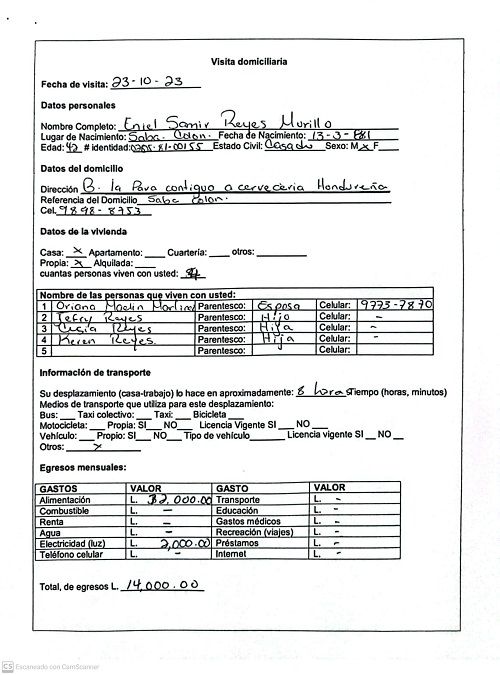 Visita domiciliaria
Fecha de visita: 23-10-23
Datos personales
Nombre Completo: Eniel Samir Reyes Murillo
Lugar de Nacimiento: Saba. Colon. Fecha de Nacimiento: 13-3-
Edad: 42 # identidad: Estado Civil: Casado Sexo: M x F
Datos del domicilio
Dirección B. la Pava contiguo a cerveceria Hondureña
Referencia del Domicilio Saba Colon.
Cel. 9898-8753
Datos de la vivienda
Casa: x Apartamento: Cuartería: otros:
Propia: x Alquilada:
cuantas personas viven con usted:
Nombre de las personas que viven con usted:
1 Oriana Parentesco: Esposa Celular: 9773-7870
2 Jefry Reyes Parentesco: Hijo Celular: -
3 Reyes Parentesco: Hija Celular: -
4 Keren Reyes. Parentesco: Hija Celular: -
5 Parentesco: Celular:
Información de transporte
Su desplazamiento (casa-trabajo) lo hace en aproximadamente: 8 horas Tiempo (horas, minutos)
Medios de transporte que utiliza para este desplazamiento:
Bus: Taxi colectivo: Taxi: Bicicleta
Motocicleta: Propia: SI NO Licencia Vigente SI NO
Vehículo: Propio: SI NO Tipo de vehículo Licencia vigente SI NO
Otros: x
Egresos mensuales:
GASTOS VALOR GASTO VALOR
Alimentación L. 12,000.00 Transporte L. -
Combustible L. - Educación L. -
Renta L. - Gastos médicos L. -
Agua L. - Recreación (viajes) L. -
Electricidad (luz) L. 2,000.00 Préstamos L. -
Teléfono celular L. - Internet L. -
Total, de egresos L. 14,000.00
CS Escaneado con CamScanner